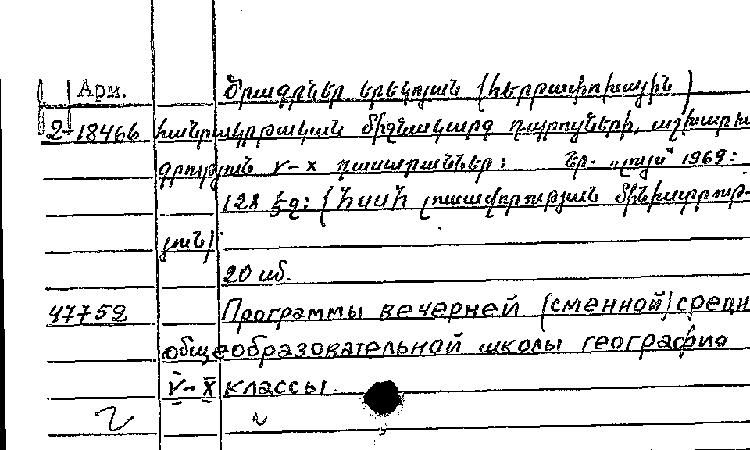 Арм. Ծրագրներ երեկոյան (հերթափոխային)
2-18466 հանրակրթական միջնակարգ դպրոցների, աշխարհա
գրություն V-X դասարաններ: Եր. „Լույս" 1969:
128 էջ: (ՀՍՍՀ լուսավորության մինիստրութ-
յուն)
20 սմ.
47752 Программы вечерней (сменной) средн
общеобразовательной школы география
V-X классы.